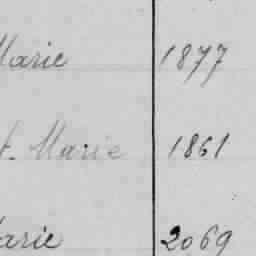 Marie 1877
t. Marie 1861
Marie 2069